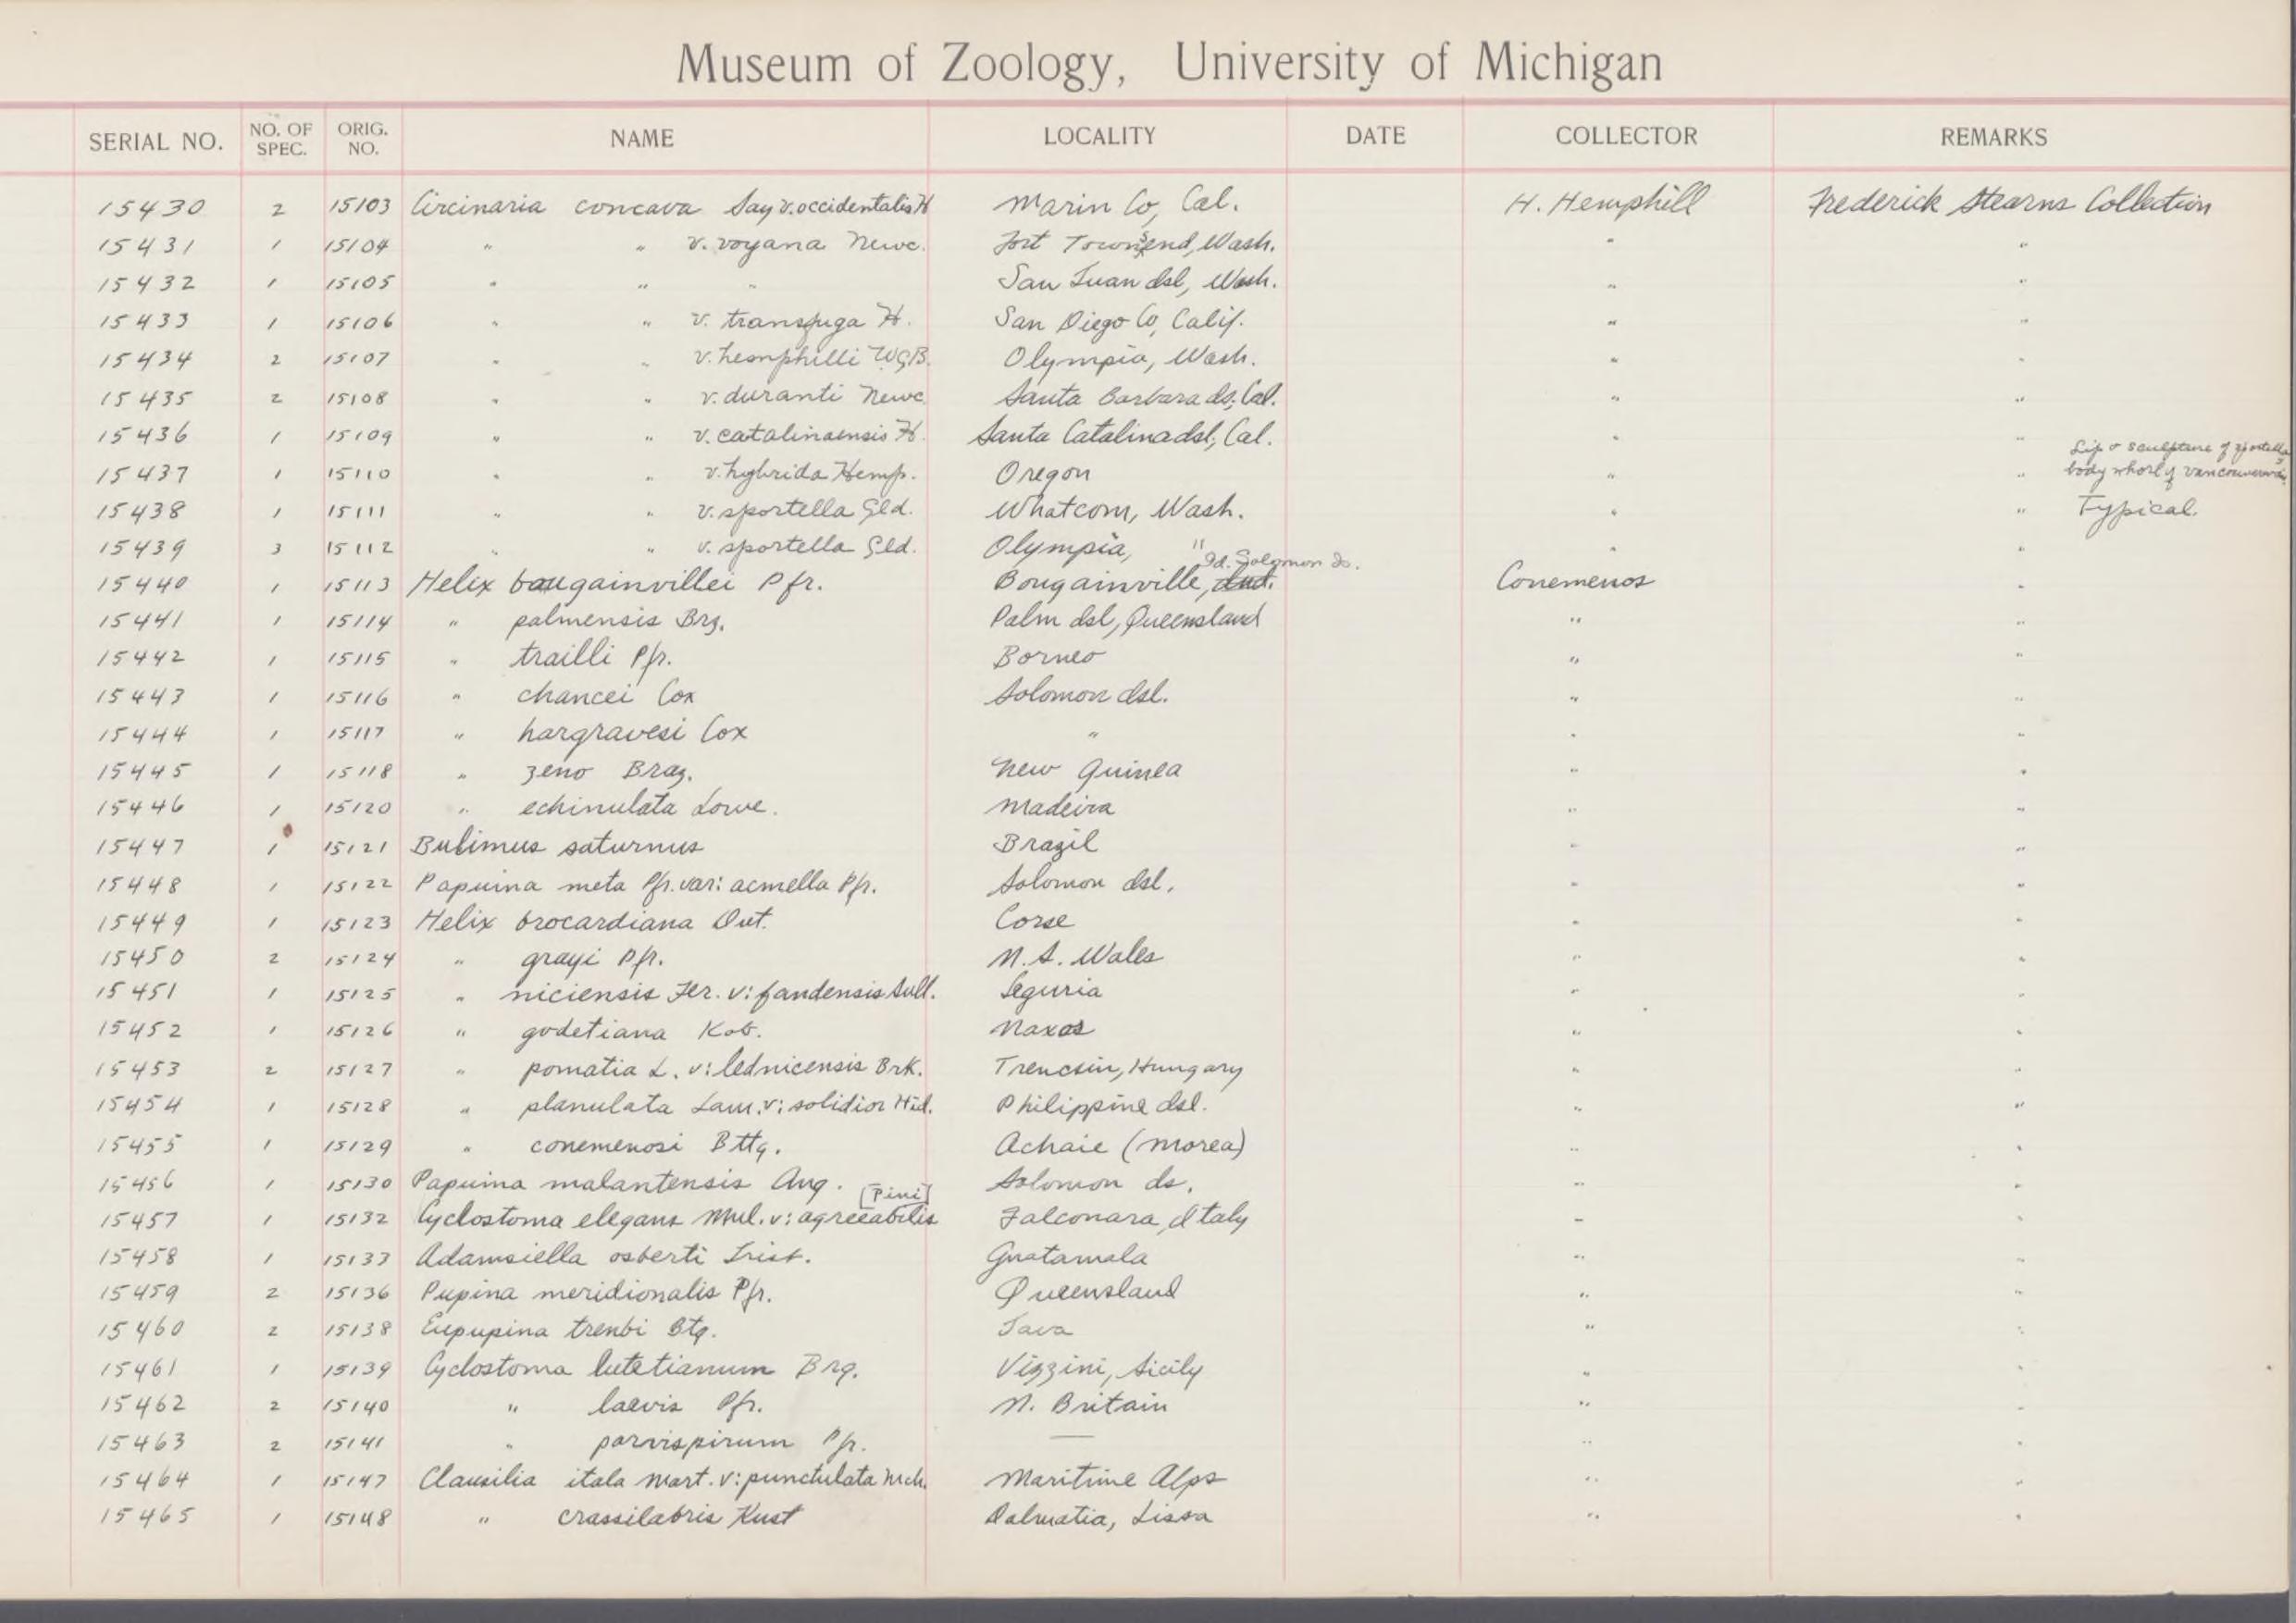 Museum of Zoology, University of Michigan
SERIAL NO. NO. OF SPEC. ORIG. NO. NAME LOCALITY DATE COLLECTOR REMARKS
15430 2 15103 Circinaria concava Say v. occidentalis H Marin Co, Cal. H. Hemphill Frederick Stearns Collection
15431 1 15104 " " v. voyana Newc. Fort Townsend, Wash. " "
15432 1 15105 " " " San Juan Isl, Wash. " "
15433 1 15106 " " v. transfuga H. San Diego Co, Calif. " "
15434 2 15107 " " v. hemphilli W.G.B. Olympia, Wash. " "
15435 2 15108 " " v. duranti Newc. Santa Barbara Is; Cal. " "
15436 1 15109 " " v. catalinaensis H. Santa Catalina Isl; Cal. " "
15437 1 15110 " " v. hybrida Hemp. Oregon " " Lip & sculpture of sportella body whorl of
15438 1 15111 " " v. sportella Gld. Whatcom, Wash. " " Typical.
15439 3 15112 " " v. sportella Gld. Olympia, " " "
15440 1 15113 Helix bougainvillei Pfr. Bougainville, Id. Solomon Is. Conemenos "
15441 1 15114 " palmensis Brz. Palm Isl, Queensland " "
15442 1 15115 " trailli Pfr. Borneo " "
15443 1 15116 " chancei Cox Solomon Isl. " "
15444 1 15117 " hargravesi Cox " " "
15445 1 15118 " zeno Braz. New Guinea " "
15446 1 15120 " echinulata Lowe. Madeira " "
15447 1 15121 Bulimus saturnus Brazil " "
15448 1 15122 Papuina meta Pfr. var: acmella Pfr. Solomon Isl. " "
15449 1 15123 Helix brocardiana Dut. Corse " "
15450 2 15124 " grayi Pfr. N. S. Wales " "
15451 1 15125 " niciensis Fer. v: faudensis Sull. Leguria " "
15452 1 15126 " godetiana Kob. Naxos " "
15453 2 15127 " pomatia L. v: lednicensis Brk. Trencsin, Hungary " "
15454 1 15128 " planulata Lam. v: solidior Hid. Philippine Isl. " "
15455 1 15129 " conemenosi Bttg. Achaie (Morea) " "
15456 1 15130 Papuina malantensis Ang. Solomon Is. " "
15457 1 15132 Cyclostoma elegans Mul. v: agreeabilis [Pini] Falconara, Italy " "
15458 1 15133 Adamsiella osberti Trist. Guatamala " "
15459 2 15136 Pupina meridionalis Pfr. Queensland " "
15460 2 15138 Eupupina trenbi Btg. Java " "
15461 1 15139 Cyclostoma lutetianum Brg. Vizzini, Sicily " "
15462 2 15140 " laevis Pfr. N. Britain " "
15463 2 15141 " parvispirum Pfr. — " "
15464 1 15147 Clausilia itala Mart. v: punctulata Mch. Maritime Alps " "
15465 1 15148 " crassilabris Kust Dalmatia, Lissa " "